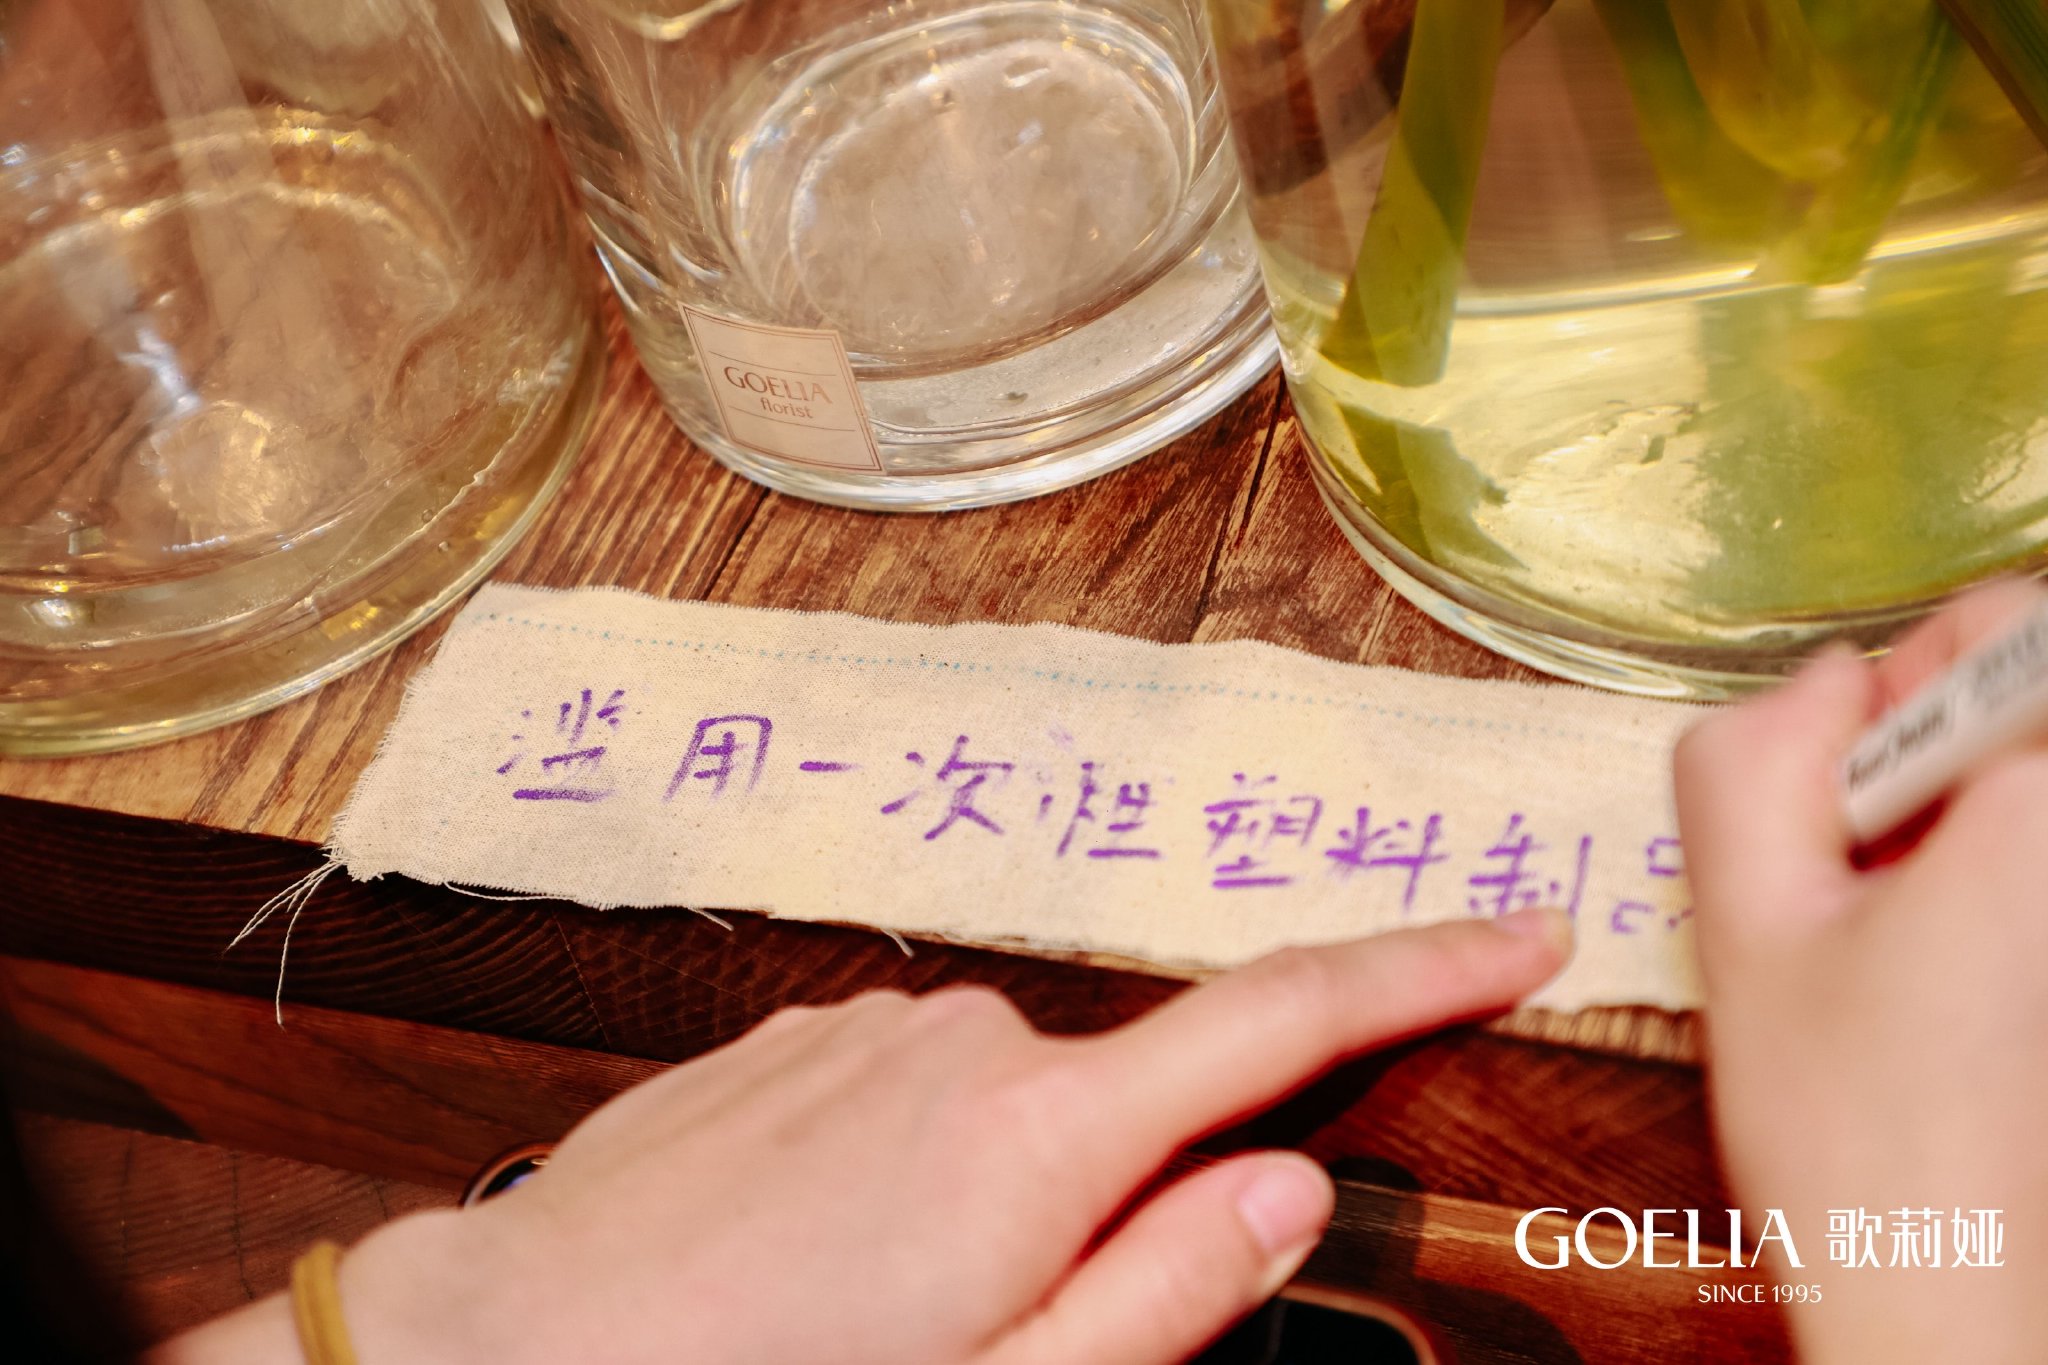 GOELIA
florist
滥用一次性塑料制品
GOELIA 歌莉娅
SINCE 1995